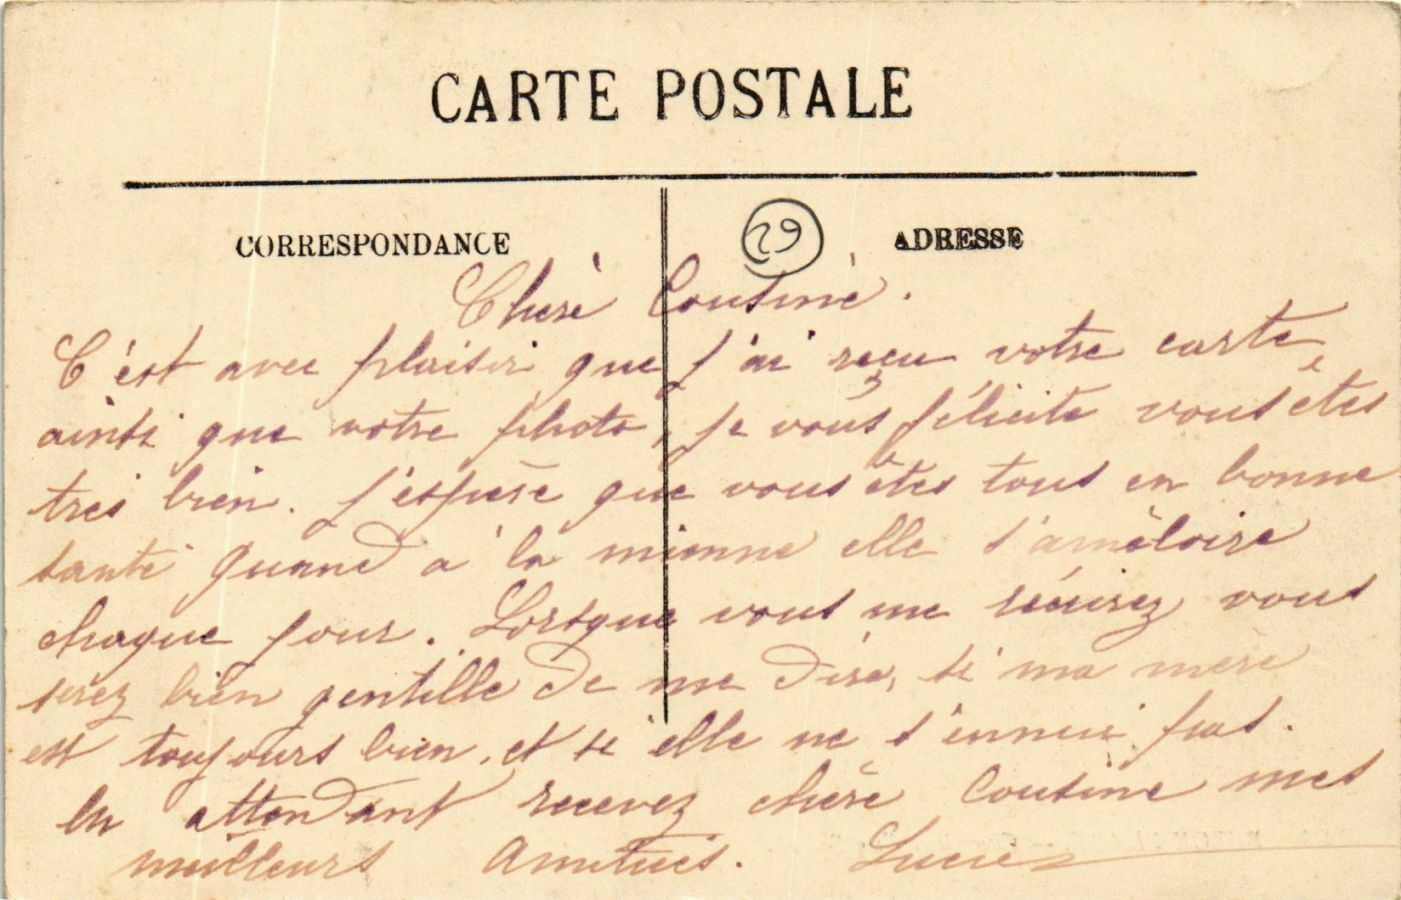 CARTE POSTALE
CORRESPONDANCE
29
ADRESSE
Chère Cousine.
C'est avec plaisir que j'ai reçu votre carte,
ainsi que votre photo, je vous félicite vous êtes
très bien. J'espère que vous êtes tous en bonne
santé quand a la mienne elle s'améloire
chaque jour. Lorsque vous me vous
serez bien gentille de me dire, si ma mère
est toujours bien, et si elle ne s'ennui pas.
En attendant recevez chère Cousine mes
meilleurs Amitiés. Lucie